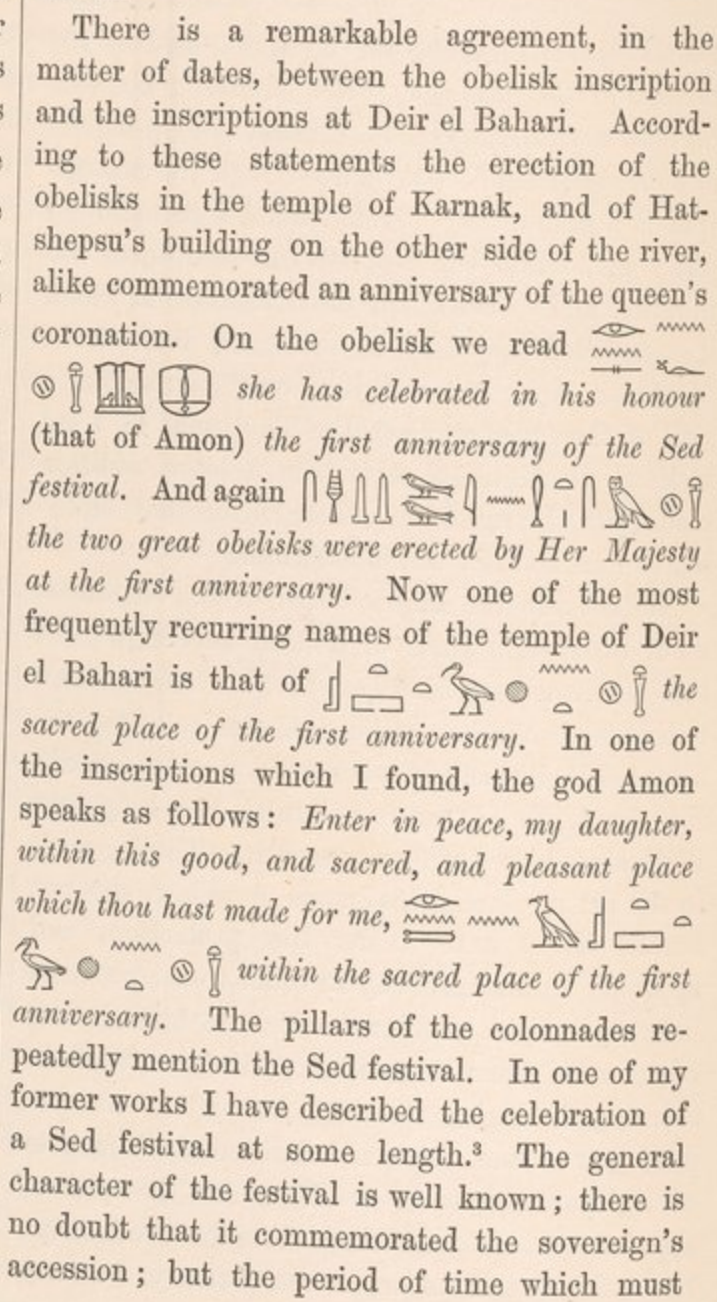 There is a remarkable agreement, in the
matter of dates, between the obelisk inscription
and the inscriptions at Deir el Bahari. Accord-
ing to these statements the erection of the
obelisks in the temple of Karnak, and of Hat-
shepsu's building on the other side of the river,
alike commemorated an anniversary of the queen's
coronation. On the obelisk we read
she has celebrated in his honour
(that of Amon) the first anniversary of the Sed
festival. And again
the two great obelisks were erected by Her Majesty
at the first anniversary. Now one of the most
frequently recurring names of the temple of Deir
el Bahari is that of the
sacred place of the first anniversary. In one of
the inscriptions which I found, the god Amon
speaks as follows: Enter in peace, my daughter,
within this good, and sacred, and pleasant place
which thou hast made for me,
within the sacred place of the first
anniversary. The pillars of the colonnades re-
peatedly mention the Sed festival. In one of my
former works I have described the celebration of
a Sed festival at some length.³ The general
character of the festival is well known; there is
no doubt that it commemorated the sovereign's
accession; but the period of time which must